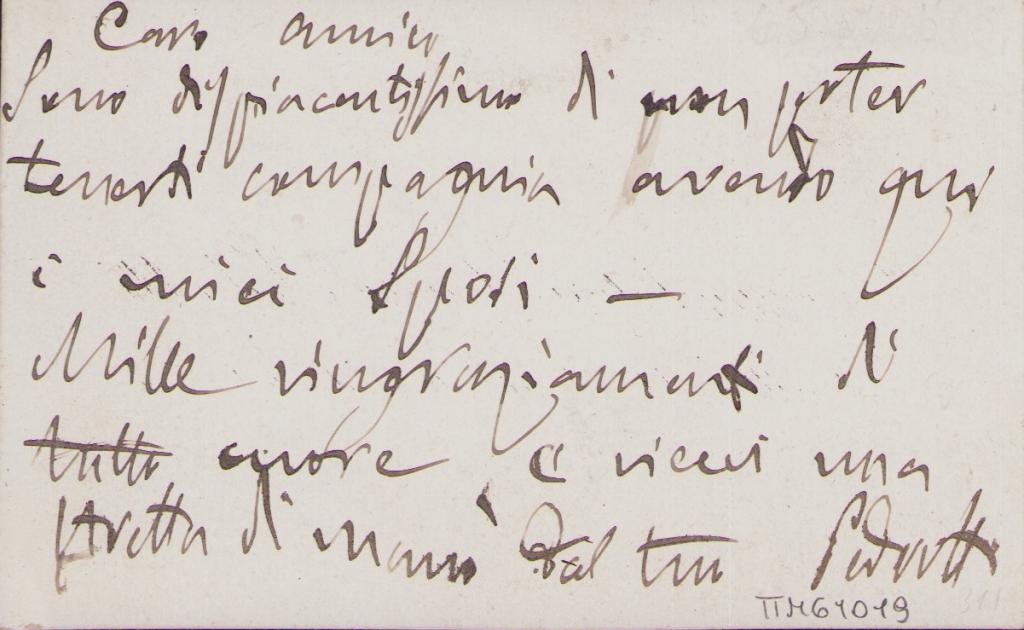 Caro amico
Sono dispiacentissimo di non poter
tenerti compagnia avendo qui
i miei Sposi —
Mille ringraziamenti di
tutto cuore e ricevi una
stretta di mano dal tuo Pedrotti
TTM61019